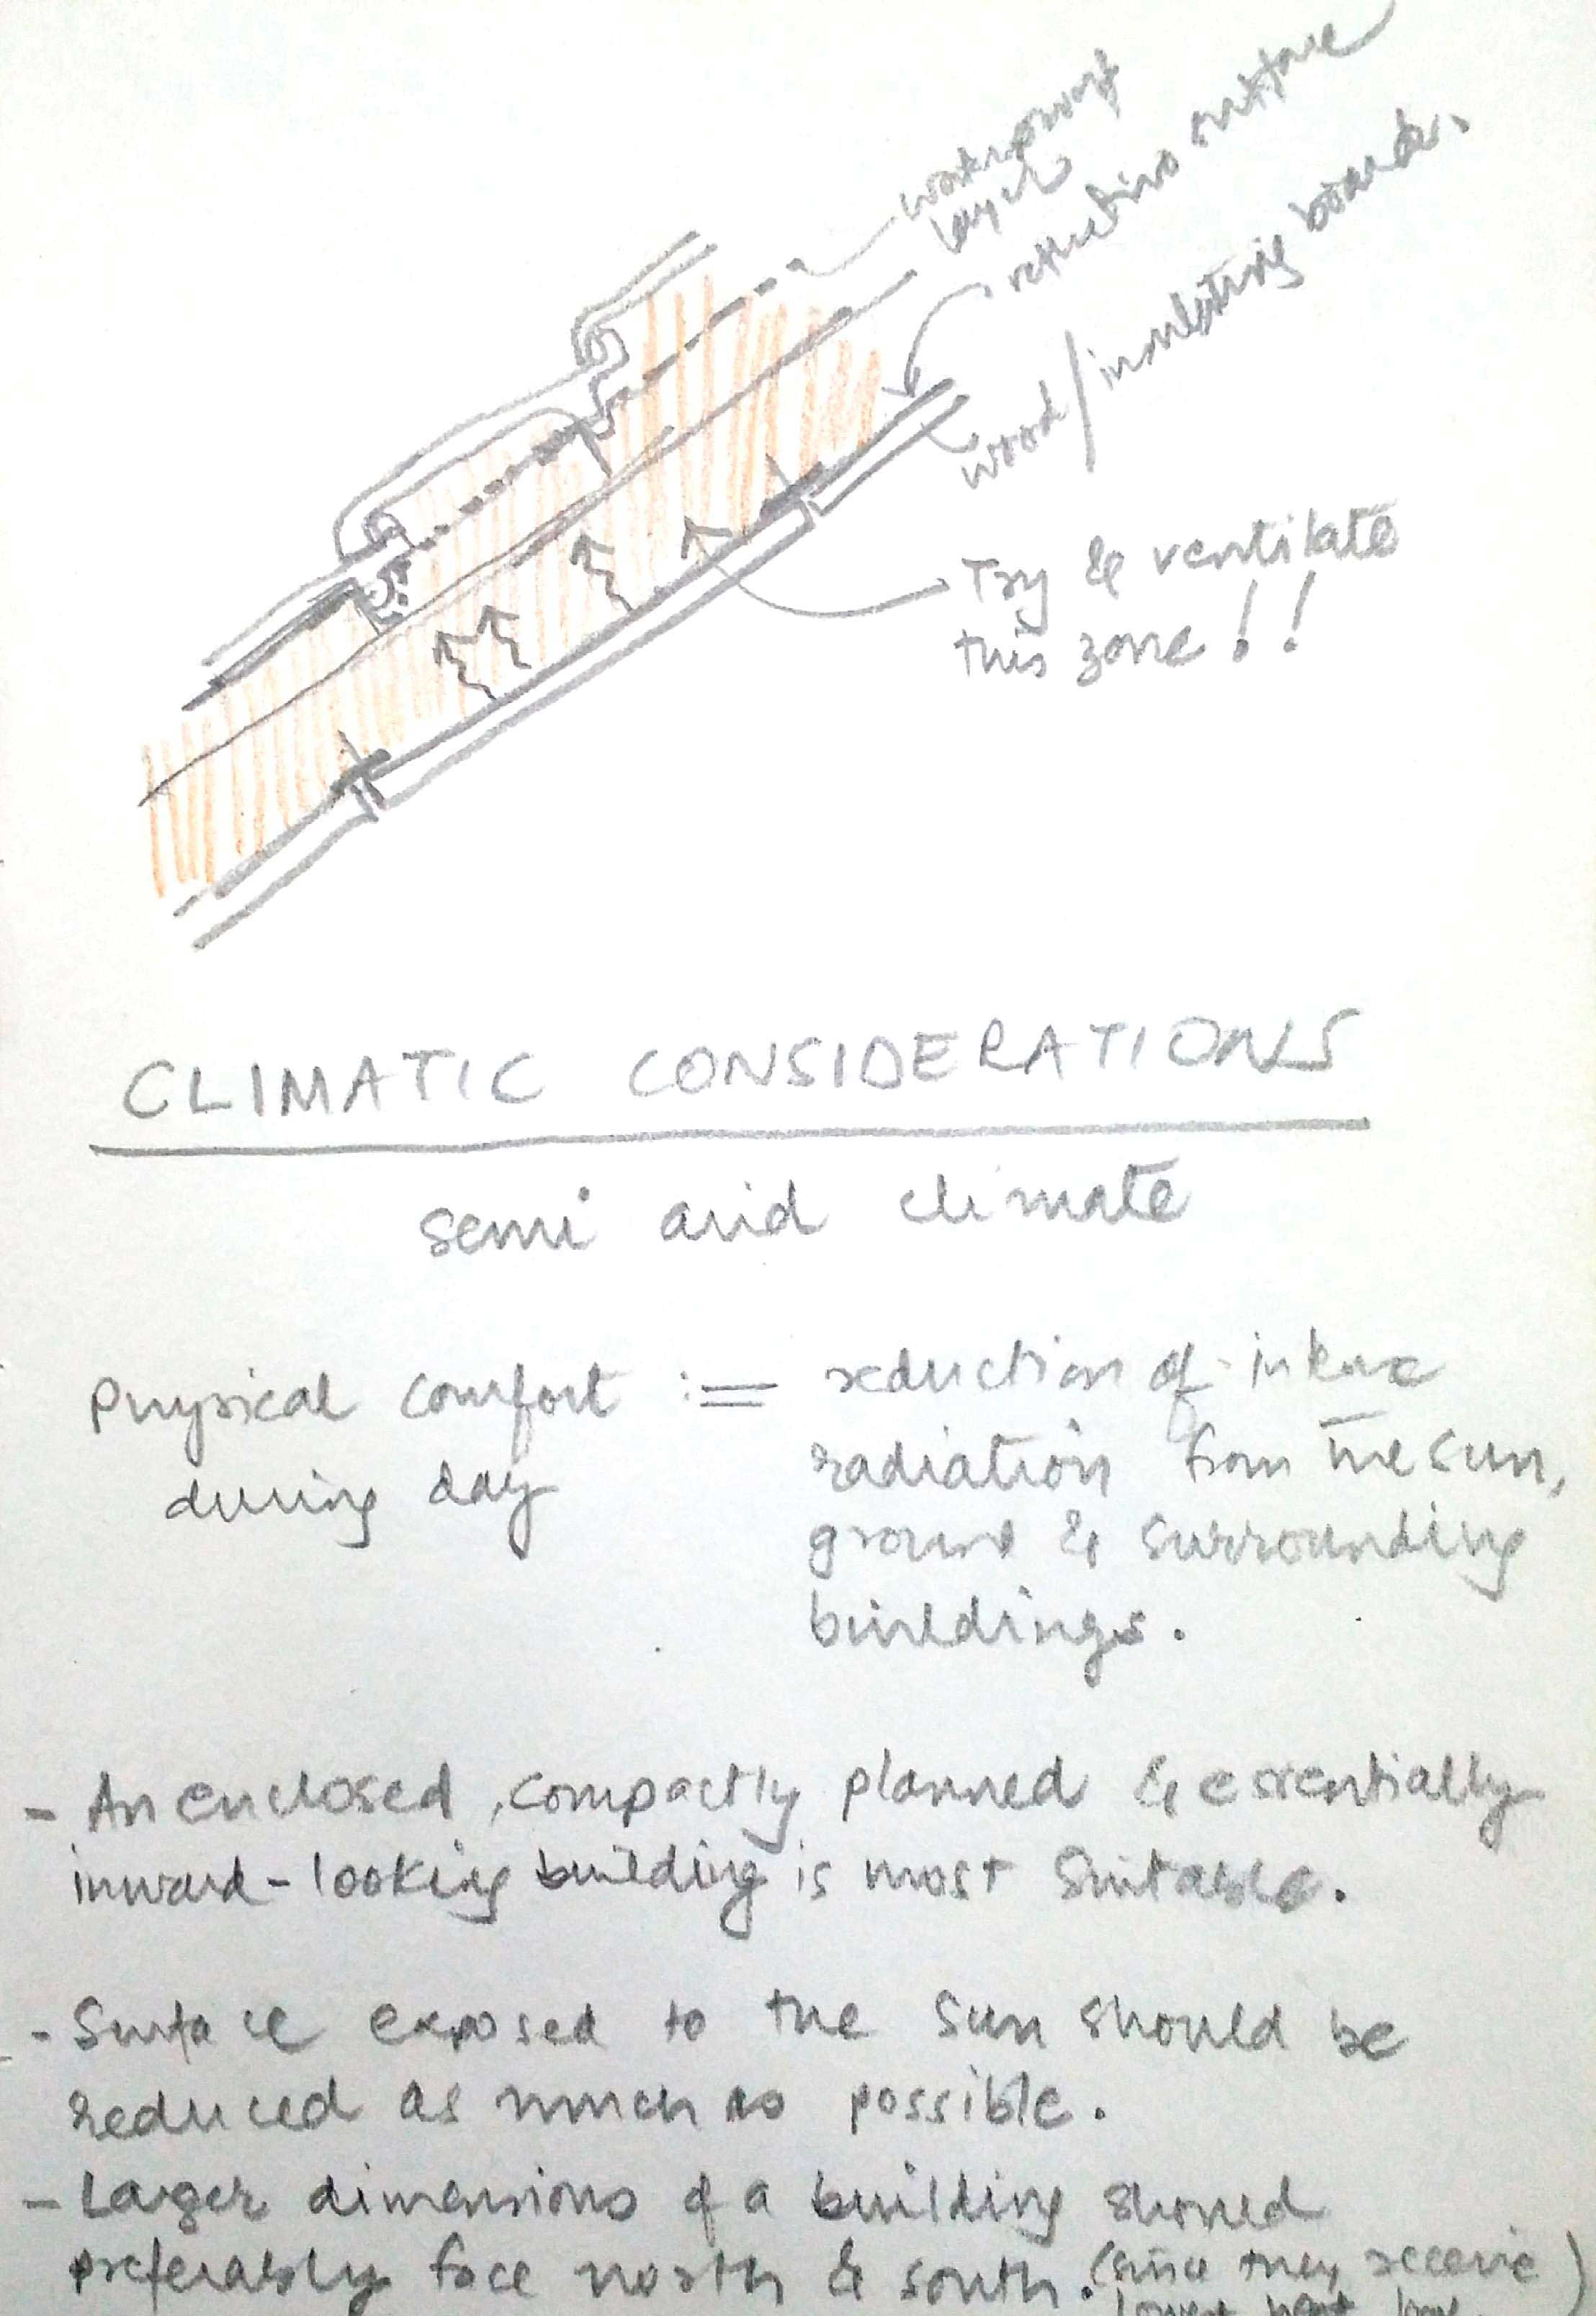 waterproofing
layer
reflective surface
wood/insulating boards.
Try & ventilate
this zone!!
CLIMATIC CONSIDERATIONS
semi arid climate
Physical comfort := reduction of intense
during day
radiation from the sun,
ground & surrounding
buildings.
- An enclosed, compactly planned & essentially
inward-looking building is most suitable.
- Surface exposed to the sun should be
reduced as much as possible.
- Larger dimensions of a building should
preferably face north & south. (since they receive
lowest heat